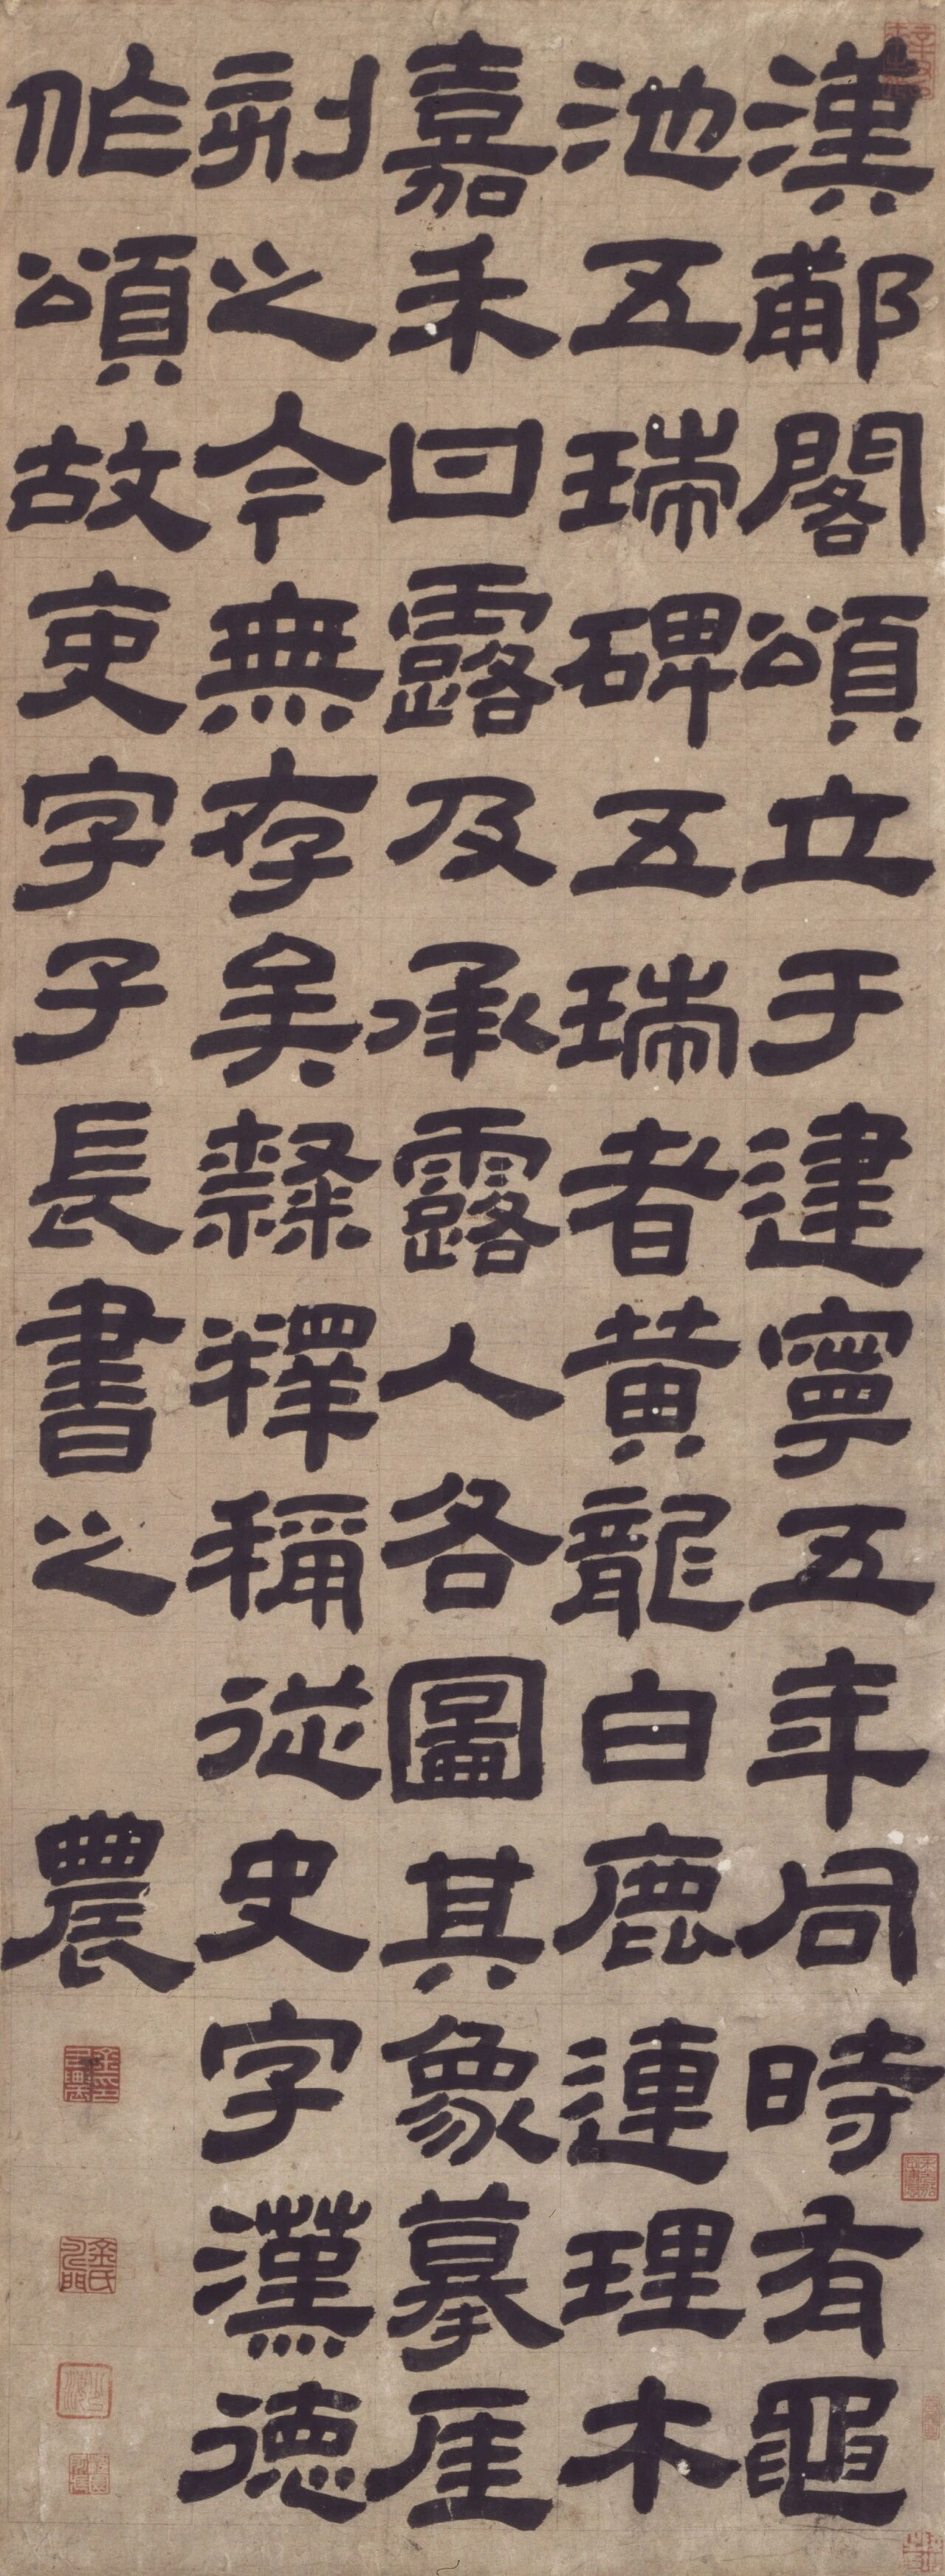 漢郙閣頌立于建寧五年同時有黽
池五瑞碑五瑞者黃龍白鹿連理木
嘉禾曰露及承露人各圖其象摹厓
刻之今無存矣隸釋稱從史字漢德
作頌故吏字子長書之 農